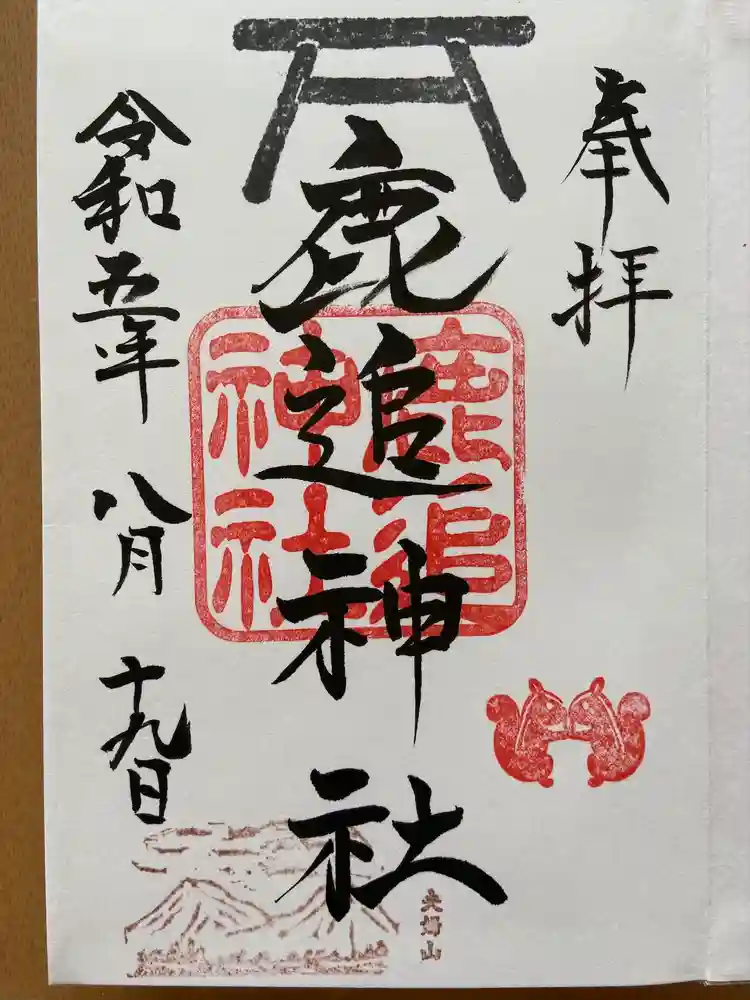 奉拝
鹿追神社
鹿追
神社
令和五年 八月 十九日
夫婦山